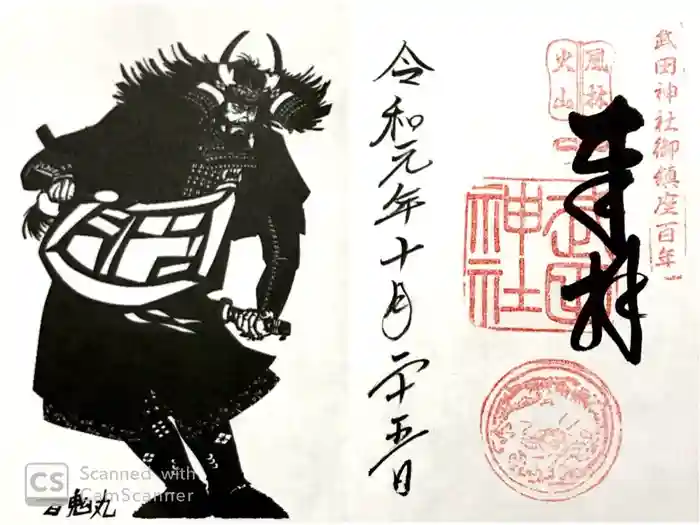 武田神社御鎮座百年
風林
火山
奉拝
武田
神社
令和元年十月二十五日
CS Scanned with
CamScanner